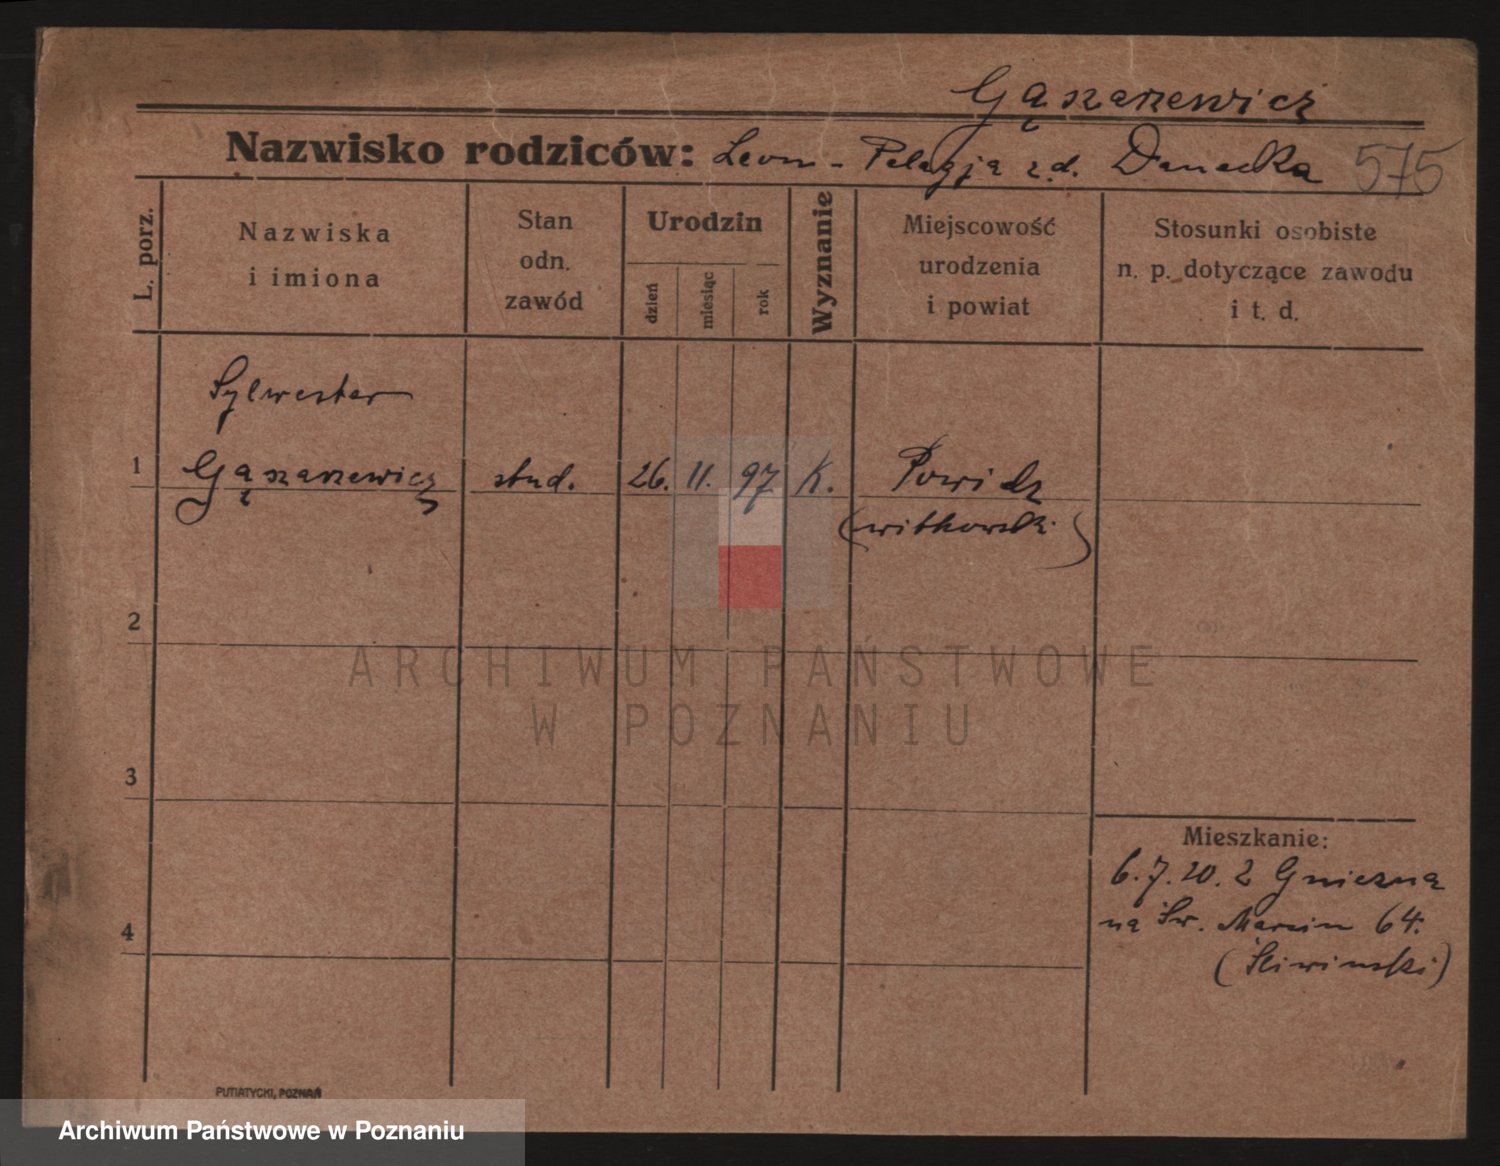 Gąszarzewicz
Nazwisko rodziców: Leon - Pelagja z.d. Danecka 575
L. porz.
Nazwiska
i imiona
Stan
odn.
zawód
Urodzin
dzień
miesiąc
rok
Wyznanie
Miejscowość
urodzenia
i powiat
Stosunki osobiste
n. p. dotyczące zawodu
i t. d.
Sylwester
1 Gąszarzewicz stud. 26. 11. 97 K. Powidz
(witkowski)
2
ARCHIWUM PAŃSTWOWE
W POZNANIU
3
Mieszkanie:
6.7.20. z Gniezna
4 na Św. Marcin 64.
(Śliwiński)
PUTIATYCKI, POZNAŃ
Archiwum Państwowe w Poznaniu